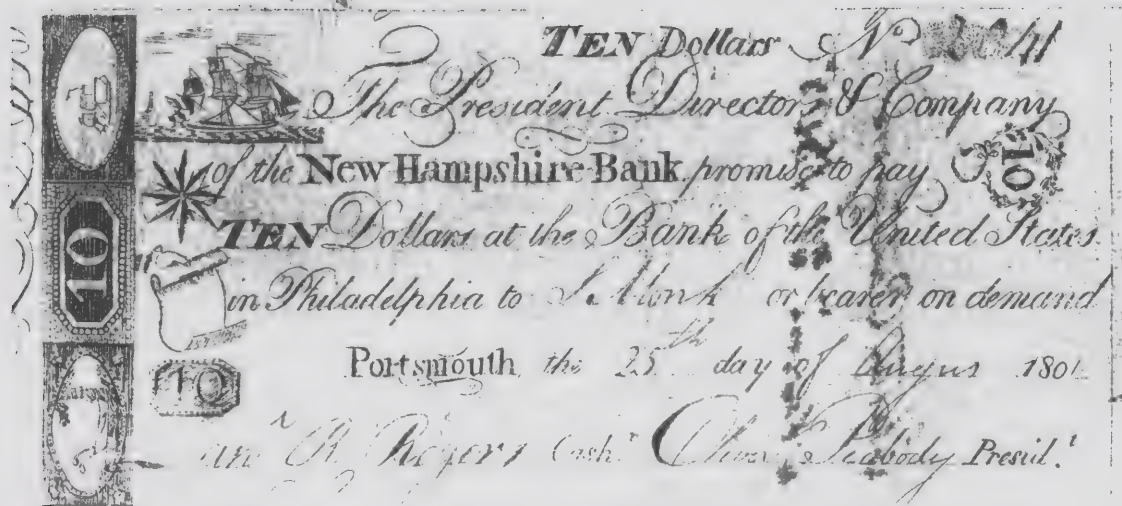 TEN Dollars No 41
The President Directors & Company
of the New Hampshire Bank promise to pay 10
TEN Dollars at the Bank of the United States
10
in Philadelphia to S. Monk or bearer on demand
Portsmouth the 25th day of 180
10
R. Rogers Cashr. Oliver Peabody Presidt.